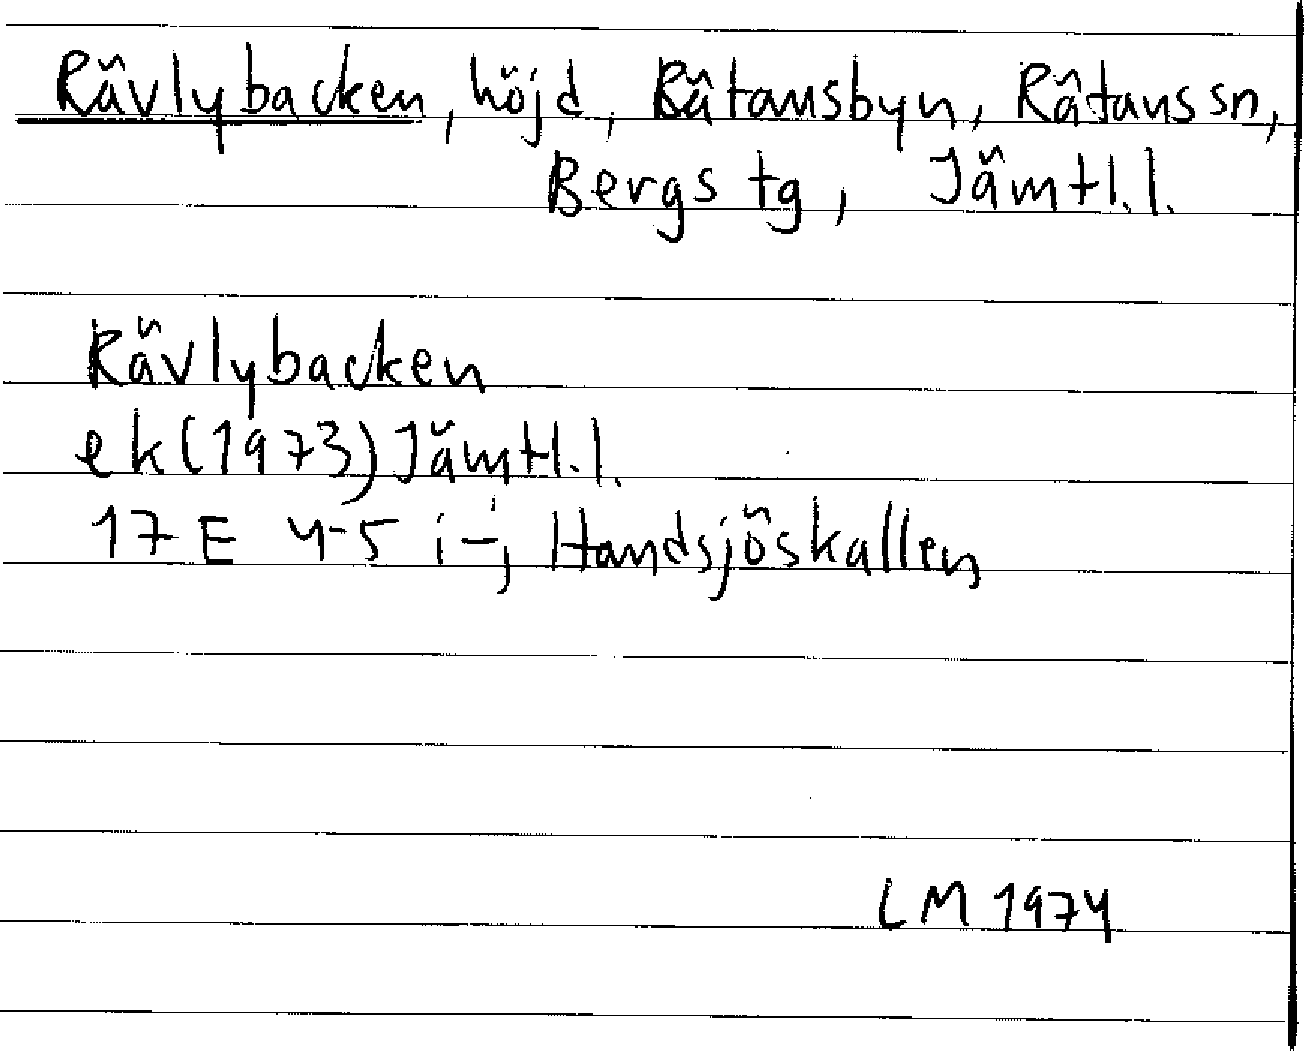 Rävlybacken, höjd, Rätansbyn, Rätans sn,
Bergs tg, Jämtl. l.
Rävlybacken
ek (1973) Jämtl. l.
17 E 4-5 i-j Handsjöskallen
LM 1974